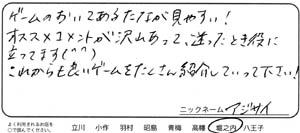 ゲームのおいてあるたなが見やすい！
オススメコメントが沢山あって、迷ったとき役に
立ってます(^^)
これからも良いゲームをたくさん紹介していって下さい！
ニックネーム アジサイ
よく利用されるお店を
○で囲んでください。
立川 小作 羽村 昭島 青梅 高幡 堀之内 八王子